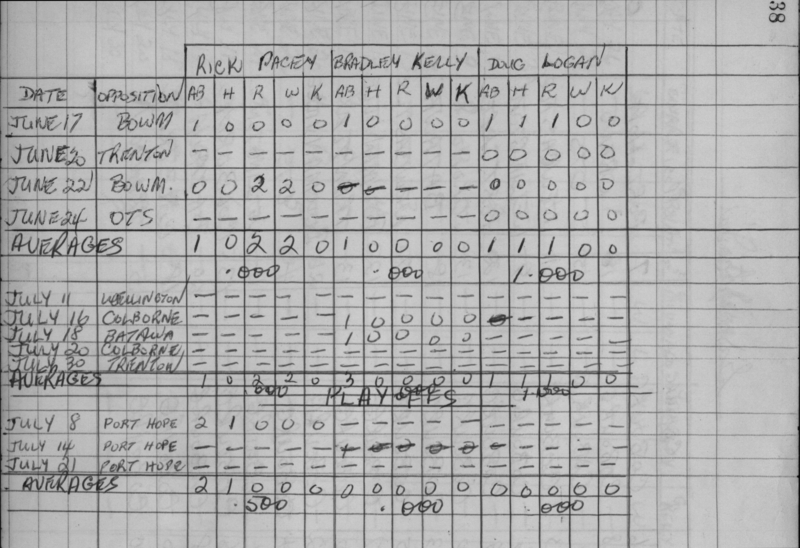 38
RICK PACEY BRADLEY KELLY DOUG LOGAN
DATE OPPOSITION AB H R W K AB H R W K AB H R W K
JUNE 17 BOWM 1 0 0 0 0 1 0 0 0 0 1 1 1 0 0
JUNE 20 TRENTON — — — — — — — — — — 0 0 0 0 0
JUNE 22 BOWM. 0 0 2 2 0 — — — — — 0 0 0 0 0
JUNE 24 OTS — — — — — — — — — — 0 0 0 0 0
AVERAGES 1 0 2 2 0 1 0 0 0 0 1 1 1 0 0
.000 .000 1.000
JULY 11 WELLINGTON — — — — — — — — — — — — — — —
JULY 16 COLBORNE — — — — — 1 0 0 0 0 — — — — —
JULY 18 BATAWA — — — — — 1 0 0 0 0 — — — — —
JULY 20 COLBORNE — — — — — — — — — — — — — — —
JULY 30 TRENTON — — — — — — — — — — — — — — —
AVERAGES 1 0 2 2 0 3 0 0 0 0 1 1 1 0 0
.000 .000 1.000
PLAY OFFS
JULY 8 PORT HOPE 2 1 0 0 0 — — — — — — — — — —
JULY 14 PORT HOPE — — — — — — — — — — — — — — —
JULY 21 PORT HOPE — — — — — — — — — — — — — — —
AVERAGES 2 1 0 0 0 0 0 0 0 0 0 0 0 0 0
.500 .000 .000